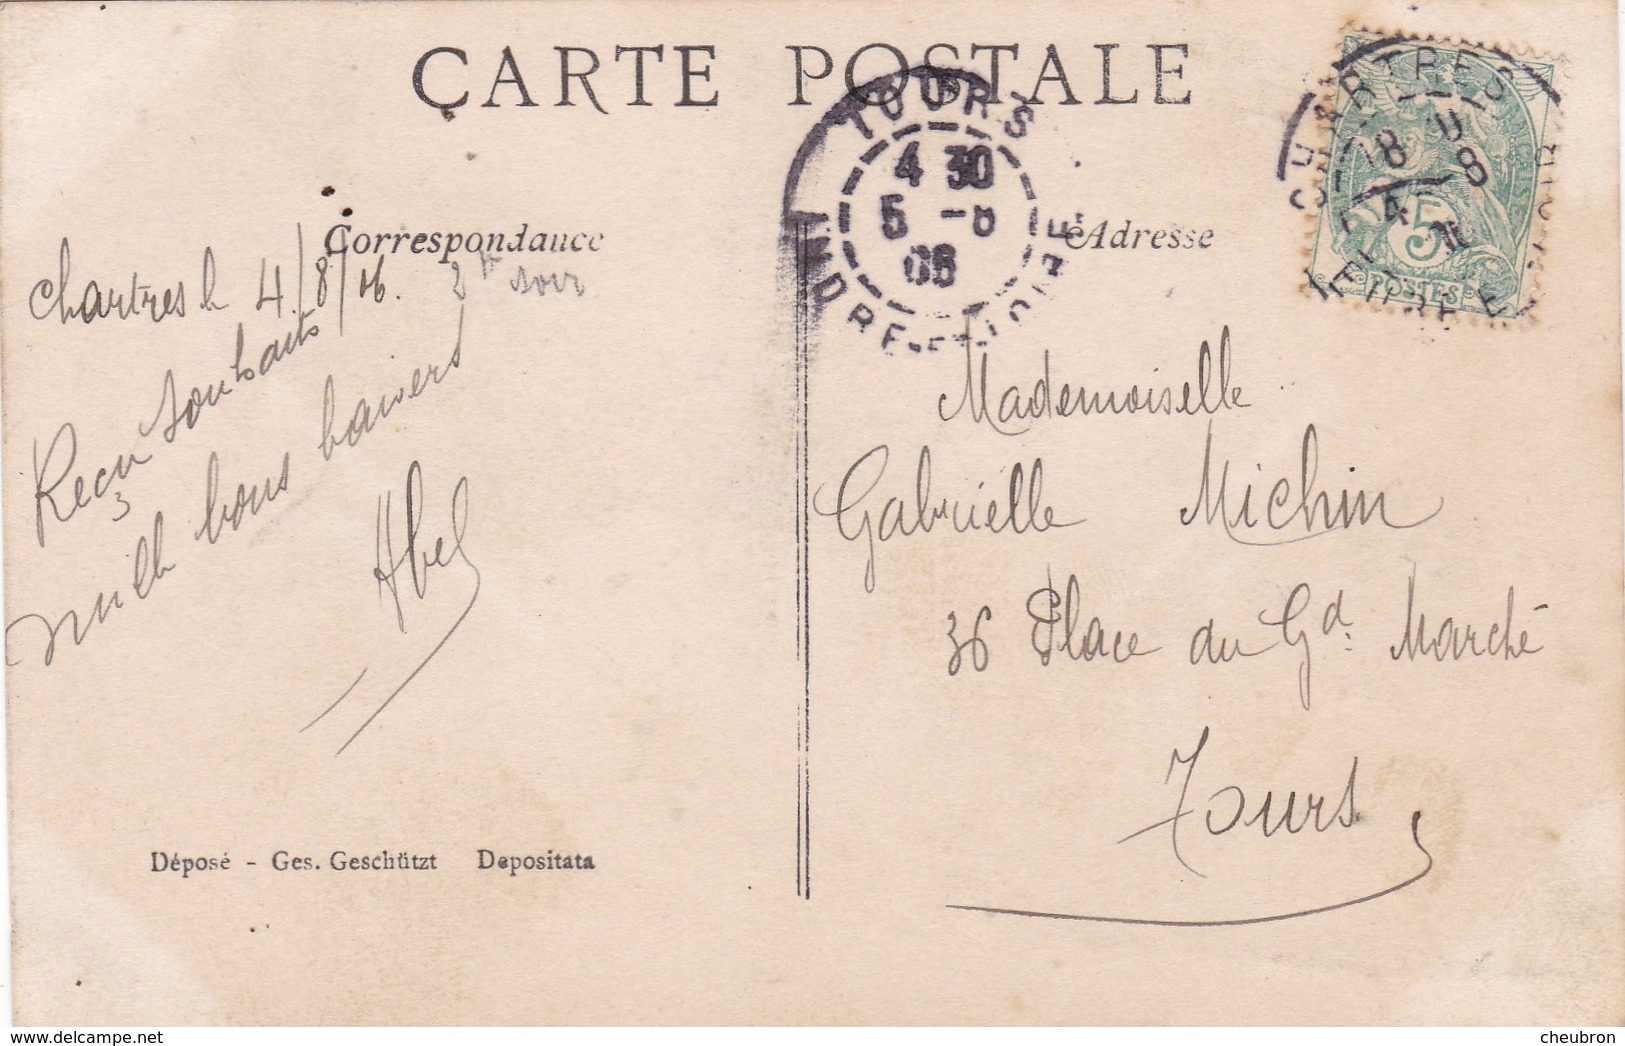 CARTE POSTALE
Correspondance
Adresse
TOURS
4 30
5 -8
06
INDRE-ET-LOIRE
CHARTRES
18
4 -8
EURE-ET-LOIR
5
POSTES
Chartres le 4/8/06. soir
Reçu souhaits
mille bons baisers
Abel
Mademoiselle
Gabrielle Michin
36 Place du Gd. Marché
Tours
Déposé - Ges. Geschützt Depositata
delcampe.net
cheubron